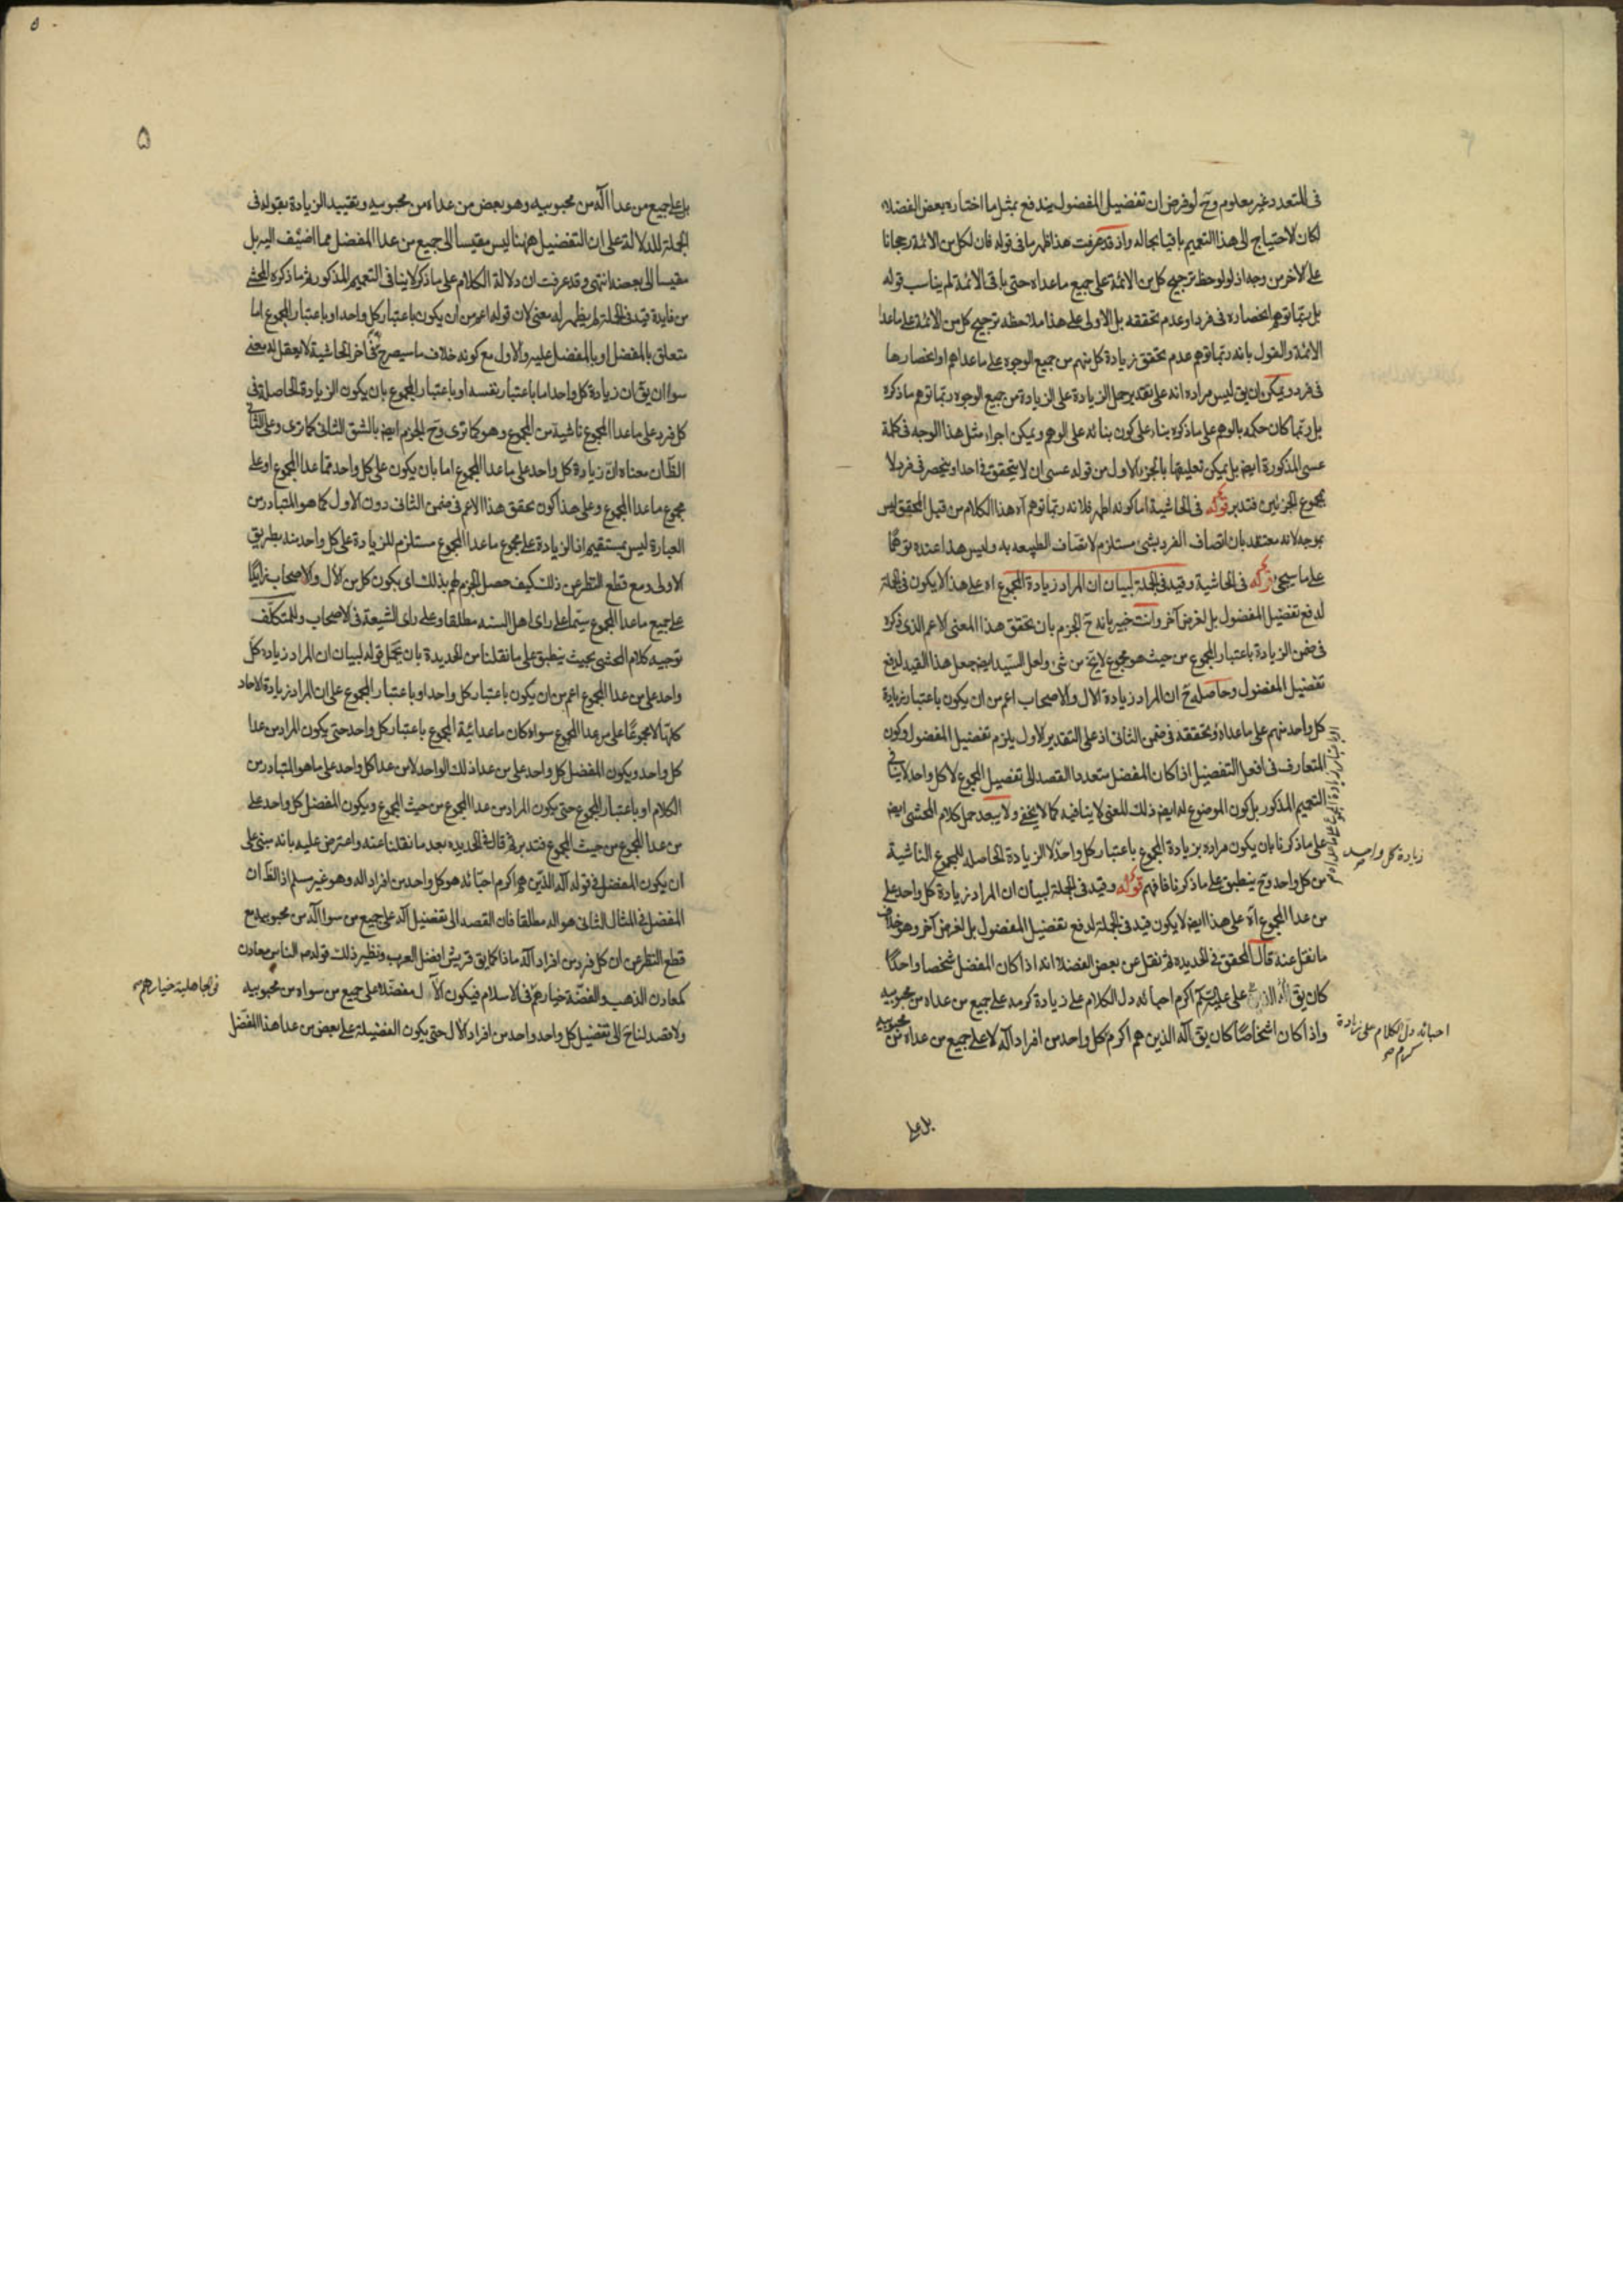 فى المتعدد غير معلوم وح لو فرض ان تفضيل المفضول يندفع بمثل ما اختاره بعض الفضلاء
لكان الاحتياج الى هذا التعميم باقيا بحاله واذ قد عرفت هذا ظهر ما فى قوله فان لكل من الائمة رجحانا
على الاخر من وجه اذ لو لوحظ ترجيح كل من الائمة على جميع ما عداه حتى باقى الائمة لم يناسب قوله
بل ربما توهم انحصاره فى فرد او عدم تحققه بل الاولى على هذا ملاحظة ترجيح كل من الائمة على ما عدا
الائمة والقول بانه ربما توهم عدم تحقق زيادة كل منهم من جميع الوجوه على ما عداهم او انحصارها
فى فرد ويمكن ان يق ليس مراده انه على تقدير حمل الزيادة على الزيادة من جميع الوجوه ربما توهم ما ذكره
بل ربما كان حكمه بالوهم على ما ذكره بناء على كون بنائه على الوهم ويمكن اجراء مثل هذا الوجه فى كلمة
عسى المذكورة ايض بل يمكن تعليقها بالجزء الاول من قوله عسى ان لا يتحقق فى احد او ينحصر فى فرد لا
بمجموع الجزئين فتدبر قوله فى الحاشية اما كونه اظهر فلانه ربما توهم اه هذا الكلام من قبل المحقق ليس
بموجه لانه معتقد بان اتصاف الفرد بشئ مستلزم لاتصاف الطبيعة به وليس هذا عنده توهما
على ما سيجئ قوله فى الحاشية وقيد فى الجملة لبيان ان المراد زيادة المجموع اه على هذا لا يكون فى الجملة
لدفع تفضيل المفضول بل لغرض آخر وانت خبير بانه ح الجزم بان تحقق هذا المعنى الاعم الذى ذكره
فى ضمن الزيادة باعتبار المجموع من حيث هو مجموع لا يخ من شئ ولعل السيد ايض جعل هذا القيد لدفع
تفضيل المفضول وحاصله ح ان المراد زيادة الال والاصحاب اعم من ان يكون باعتبار زيادة
كل واحد منهم على ما عداه وتحققه فى ضمن الثانى اذ على التقدير الاول يلزم تفضيل المفضول وكون
المتعارف فى افعل التفضيل اذا كان المفضل متعددا القصد الى تفضيل المجموع لا كل واحد لا ينافى
التعميم المذكور بل كون الموضوع له ايض ذلك المعنى لا ينافيه كما لا يخفى ولا يبعد حمل كلام المحشى ايض
على ما ذكرنا بان يكون مراده بزيادة المجموع باعتبار كل واحد لا الزيادة الحاصلة للمجموع الناشية
زيادة كل واحد
من كل واحد وح ينطبق على ما ذكرنا فافهم قوله وقيد فى الجملة لبيان ان المراد زيادة كل واحد على
من عدا المجموع اه على هذا ايض لا يكون قيد فى الجملة لدفع تفضيل المفضول بل لغرض آخر وهو خلاف
ما نقل عنه قال المحقق فى الجديدة ثم نقل عن بعض الفضلاء انه اذا كان المفضل شخصا واحدا
كان يق اكرم احبائه دل الكلام على زيادة كرمه على جميع من عداه من محبوبيه
احبائه دل الكلام على زيادة
كرم
واذا كان اشخاصا كان يق آله الذين هم اكرم كل واحد من افراد آله لا على جميع من عداه من محبوبيه
بل على
۵
بل على جميع من عدا آله من محبوبيه وهو بعض من عداه من محبوبيه وتقييد الزيادة بقوله فى
الجملة للدلالة على ان التفضيل ههنا ليس مقيسا الى جميع من عدا المفضل مما اضيف اليه بل
مقيسا الى بعضه انتهى وقد عرفت ان دلالة الكلام على ما ذكر لا ينافى التعميم المذكور ثم ما ذكره المحشى
من فايدة قيد فى الجملة لم يظهر له معنى لان قوله اعم من ان يكون باعتبار كل واحد او باعتبار المجموع اما
متعلق بالمفضل او بالمفضل عليه والاول مع كونه خلاف ما سيصرح به فى اخر الحاشية لا يعقل له معنى
سوا ان يق ان زيادة كل واحد اما باعتبار نفسه او باعتبار المجموع بان يكون الزيادة الحاصلة فى
كل فرد على ما عدا المجموع ناشية من المجموع وهو كما ترى وح الجزم ايض بالشق الثانى كما ترى وعلى الثانى
الظ ان معناه ان زيادة كل واحد على ما عدا المجموع اما بان يكون على كل واحد مما عدا المجموع او على
مجموع ما عدا المجموع وعلى هذا كون تحقق هذا الاعم فى ضمن الثانى دون الاول كما هو المتبادر من
العبارة ليس بمستقيم اذ الزيادة على مجموع ما عدا المجموع مستلزم للزيادة على كل واحد منه بطريق
الاولى ومع قطع النظر عن ذلك كيف حصل الجزم لهم بذلك اى بكون كل من الال والاصحاب زائدا
على جميع ما عدا المجموع سيما على راى اهل السنه مطلقا وعلى راى الشيعة فى الاصحاب وللمتكلف
توجيه كلام المحشى بحيث ينطبق على ما نقلنا من الجديدة بان يحمل قوله لبيان ان المراد زيادة كل
واحد على من عدا المجموع اعم من ان يكون باعتبار كل واحد او باعتبار المجموع على ان المراد زيادة الاحاد
كلها لا مجموعا على من عدا المجموع سواء كان ما عدائية المجموع باعتبار كل واحد حتى يكون المراد من عدا
كل واحد ويكون المفضل كل واحد على من عدا ذلك الواحد لا من عدا كل واحد على ما هو المتبادر من
الكلام او باعتبار المجموع حتى يكون المراد من عدا المجموع من حيث المجموع ويكون المفضل كل واحد على
من عدا المجموع من حيث المجموع فتدبر ثم قال فى الجديده بعد ما نقلنا عنه واعترض عليه بانه مبنى على
ان يكون المفضل فى قوله آله الذين هم اكرم احبائه هو كل واحد من افراد اله وهو غير مسلم اذ الظ ان
المفضل فى المثال الثانى هو اله مطلقا فان القصد الى تفضيل آله على جميع من سوا آله من محبوبيه مع
قطع النظر عن ان كل فرد من افراد آله ماذا كما يق قريش افضل العرب ونظير ذلك قوله ص الناس معادن
كمعادن الذهب والفضة خيارهم فى الاسلام فيكون الال مفضلا على جميع من سواه من محبوبيه
فى الجاهلية خيارهم
ولا قصد لنا ح الى تفضيل كل واحد واحد من افراد الال حتى يكون الفضيلة على بعض من عدا هذا المفضل